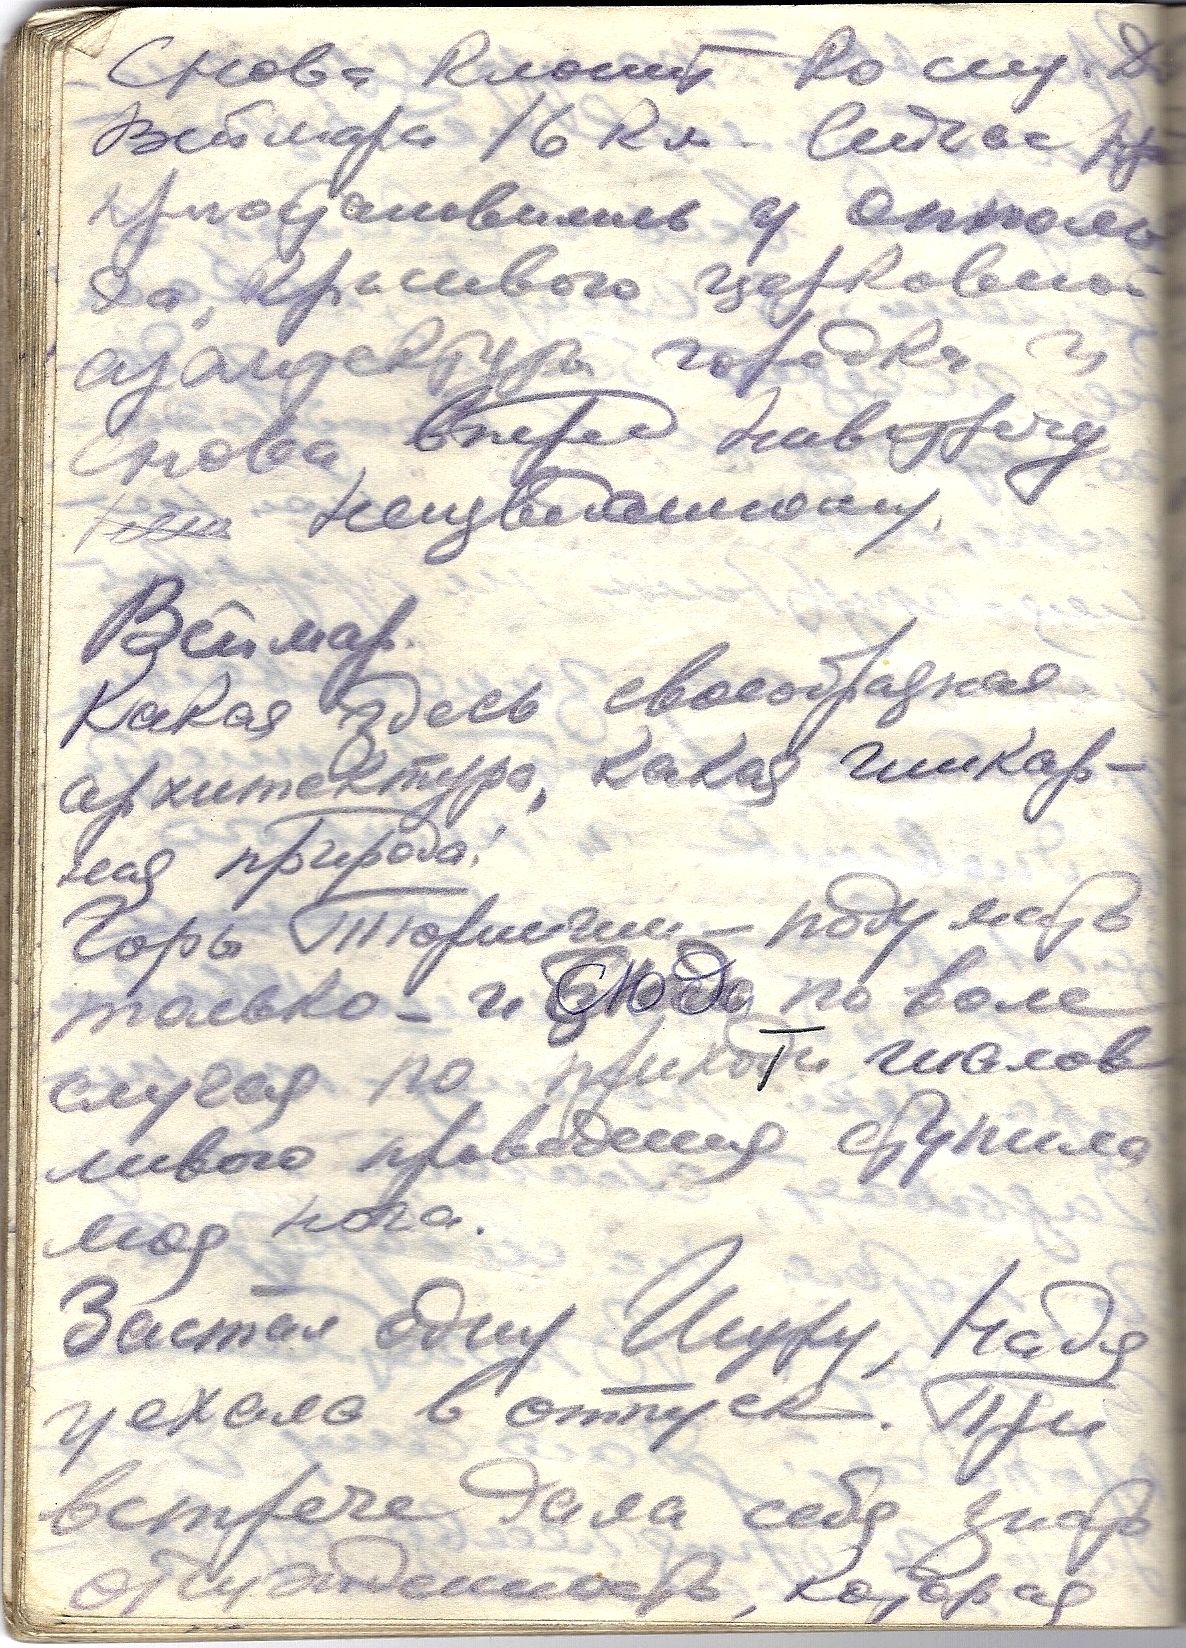 Снова клонит ко сну. До
Веймара 16 км. Сейчас
приостановились у
да, красивого церковной
архитектуры городка и
снова вперед навстречу
неизведанному.
Веймар.
Какая здесь своеобразная
архитектура, какая шикар-
ная природа!
Горы Тюрингии – подумать
только – и сюда по воле
случая по прихоти шалов
ливого проведения ступила
моя нога.
Застал одну Шуру, Надя
уехала в отпуск. При
встрече дала себя знать
отчужденность, которая